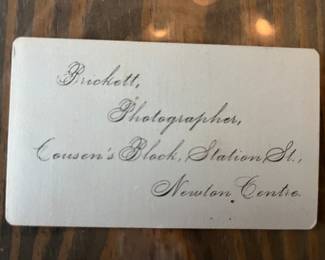 Prickett,
Photographer,
Cousen's Block, Station St.,
Newton Centre.